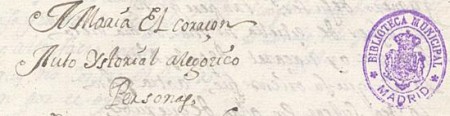 A Maria El coraçon
Auto Ystorial alegorico
Personas.
BIBLIOTECA MUNICIPAL
MADRID